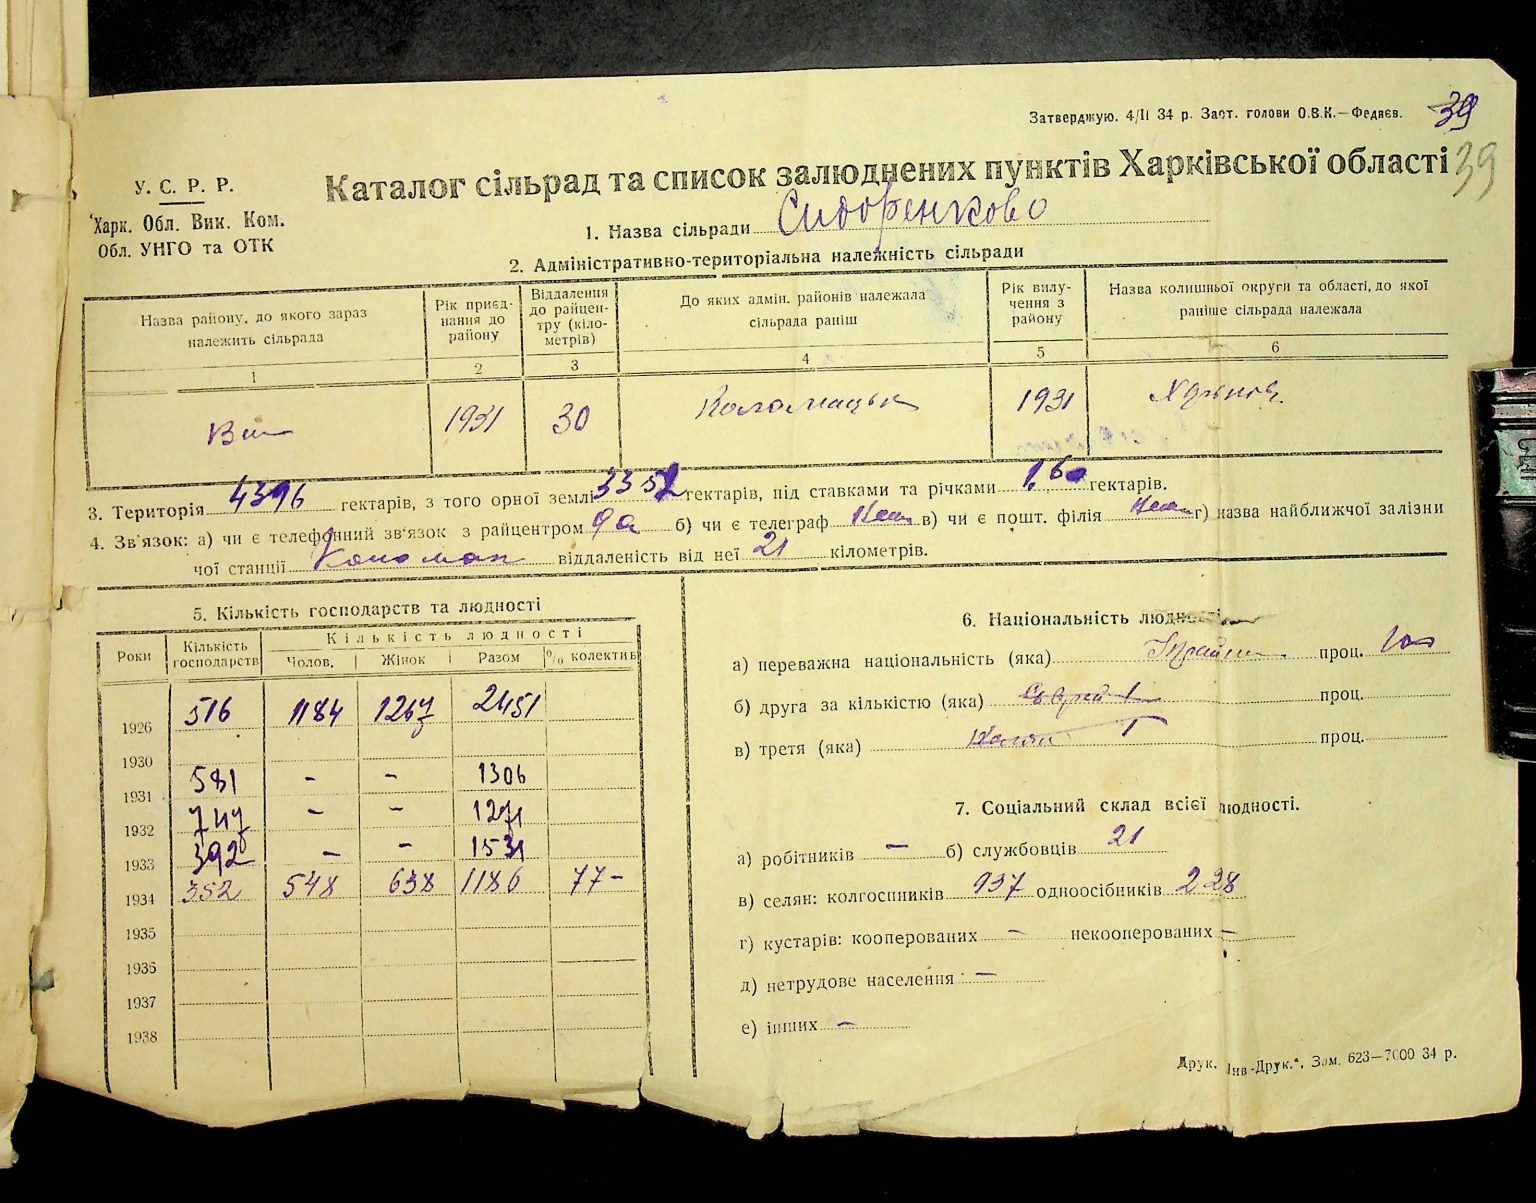 Затверджую. 4/II 34 р. Заст. голови О.В.К.—Федяєв.
39
39
У. С. Р. Р.
Харк. Обл. Вик. Ком.
Обл. УНГО та ОТК
Каталог сільрад та список залюднених пунктів Харківської області
1. Назва сільради Сидоренково
2. Адміністративно-територіальна належність сільради
Назва району, до якого зараз належить сільрада
Рік приєднання до району
Віддалення до райцентру (кілометрів)
До яких адмін. районів належала сільрада раніш
Рік вилучення з району
Назва колишньої округи та області, до якої раніше сільрада належала
1 2 3 4 5 6
1931 30 Коломацьк 1931
3. Територія 4396 гектарів, з того орної землі 3352 гектарів, під ставками та річками 1,60 гектарів.
4. Зв'язок: а) чи є телефонний зв'язок з райцентром б) чи є телеграф в) чи є пошт. філія г) назва найближчої залізни
чої станції Коломак віддаленість від неї 21 кілометрів.
5. Кількість господарств та людності
Роки
Кількість господарств
Кількість людності
Чолов. Жінок Разом % колектив
1926 516 1184 1267 2451
1930
1931 581 – – 1306
1932 747 – – 1271
1933 392 – – 1531
1934 352 548 638 1186 77–
1935
1936
1937
1938
6. Національність людності
а) переважна національність (яка) проц. 100
б) друга за кількістю (яка) проц.
в) третя (яка) проц.
7. Соціальний склад всієї людності.
а) робітників – б) службовців 21
в) селян: колгоспників 937 одноосібників 228
г) кустарів: кооперованих – некооперованих –
д) нетрудове населення: –
е) інших –
Друк. -Друк.", Зам. 623—7000 34 р.